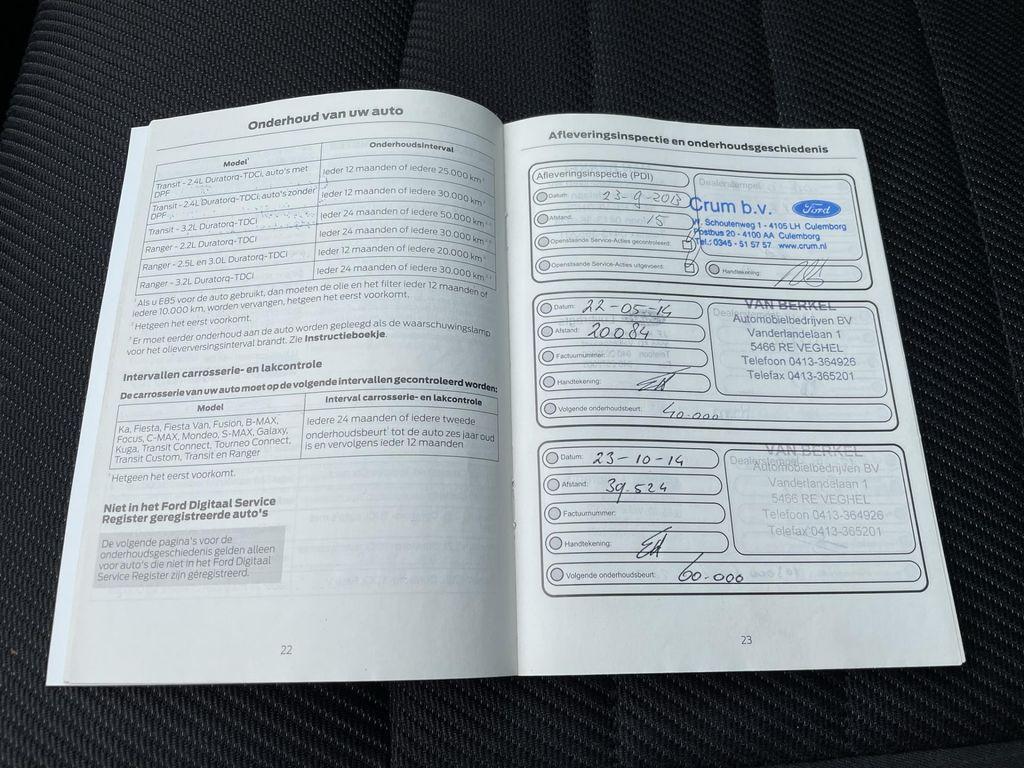 Onderhoud van uw auto
Model¹ Onderhoudsinterval
Transit - 2.4L Duratorq-TDCi, auto's met DPF Ieder 12 maanden of iedere 25.000 km
Transit - 2.4L Duratorq-TDCi, auto's zonder DPF Ieder 12 maanden of iedere 30.000 km
Transit - 3.2L Duratorq-TDCi Ieder 24 maanden of iedere 50.000 km
Ranger - 2.2L Duratorq-TDCi Ieder 24 maanden of iedere 30.000 km
Ranger - 2.5L en 3.0L Duratorq-TDCi Ieder 12 maanden of iedere 20.000 km
Ranger - 3.2L Duratorq-TDCi Ieder 24 maanden of iedere 30.000 km
¹Als u EB5 voor de auto gebruikt, dan moeten de olie en het filter ieder 12 maanden of
iedere 10.000 km, worden vervangen, hetgeen het eerst voorkomt.
²Hetgeen het eerst voorkomt.
³Er moet eerder onderhoud aan de auto worden gepleegd als de waarschuwingslamp
voor het olieverversingsinterval brandt. Zie Instructieboekje.
Intervallen carrosserie- en lakcontrole
De carrosserie van uw auto moet op de volgende intervallen gecontroleerd worden:
Model Interval carrosserie- en lakcontrole
Ka, Fiesta, Fiesta Van, Fusion, B-MAX,
Focus, C-MAX, Mondeo, S-MAX, Galaxy,
Kuga, Transit Connect, Tourneo Connect,
Transit Custom, Transit en Ranger
Iedere 24 maanden of iedere tweede
onderhoudsbeurt¹ tot de auto zes jaar oud
is en vervolgens ieder 12 maanden
¹Hetgeen het eerst voorkomt.
Niet in het Ford Digitaal Service
Register geregistreerde auto's
De volgende pagina's voor de
onderhoudsgeschiedenis gelden alleen
voor auto's die niet in het Ford Digitaal
Service Register zijn geregistreerd.
22
Afleveringsinspectie en onderhoudsgeschiedenis
Afleveringsinspectie (PDI)
Datum: 23-9-2013
Afstand: 15
Openstaande Service-Acties gecontroleerd:
Openstaande Service-Acties uitgevoerd:
Dealerstempel
Crum b.v. Ford
W. Schoutenweg 1 - 4105 LH Culemborg
Postbus 20 - 4100 AA Culemborg
Tel.: 0345 - 51 57 57 www.crum.nl
Handtekening:
Datum: 22-05-14
Afstand: 20084
Factuurnummer:
Handtekening:
Volgende onderhoudsbeurt: 40.000
VAN BERKEL
Automobielbedrijven BV
Vanderlandelaan 1
5466 RE VEGHEL
Telefoon 0413-364926
Telefax 0413-365201
Datum: 23-10-14
Afstand: 39.524
Factuurnummer:
Handtekening:
Volgende onderhoudsbeurt: 60.000
VAN BERKEL
Dealerstempel
Automobielbedrijven BV
Vanderlandelaan 1
5466 RE VEGHEL
Telefoon 0413-364926
Telefax 0413-365201
23